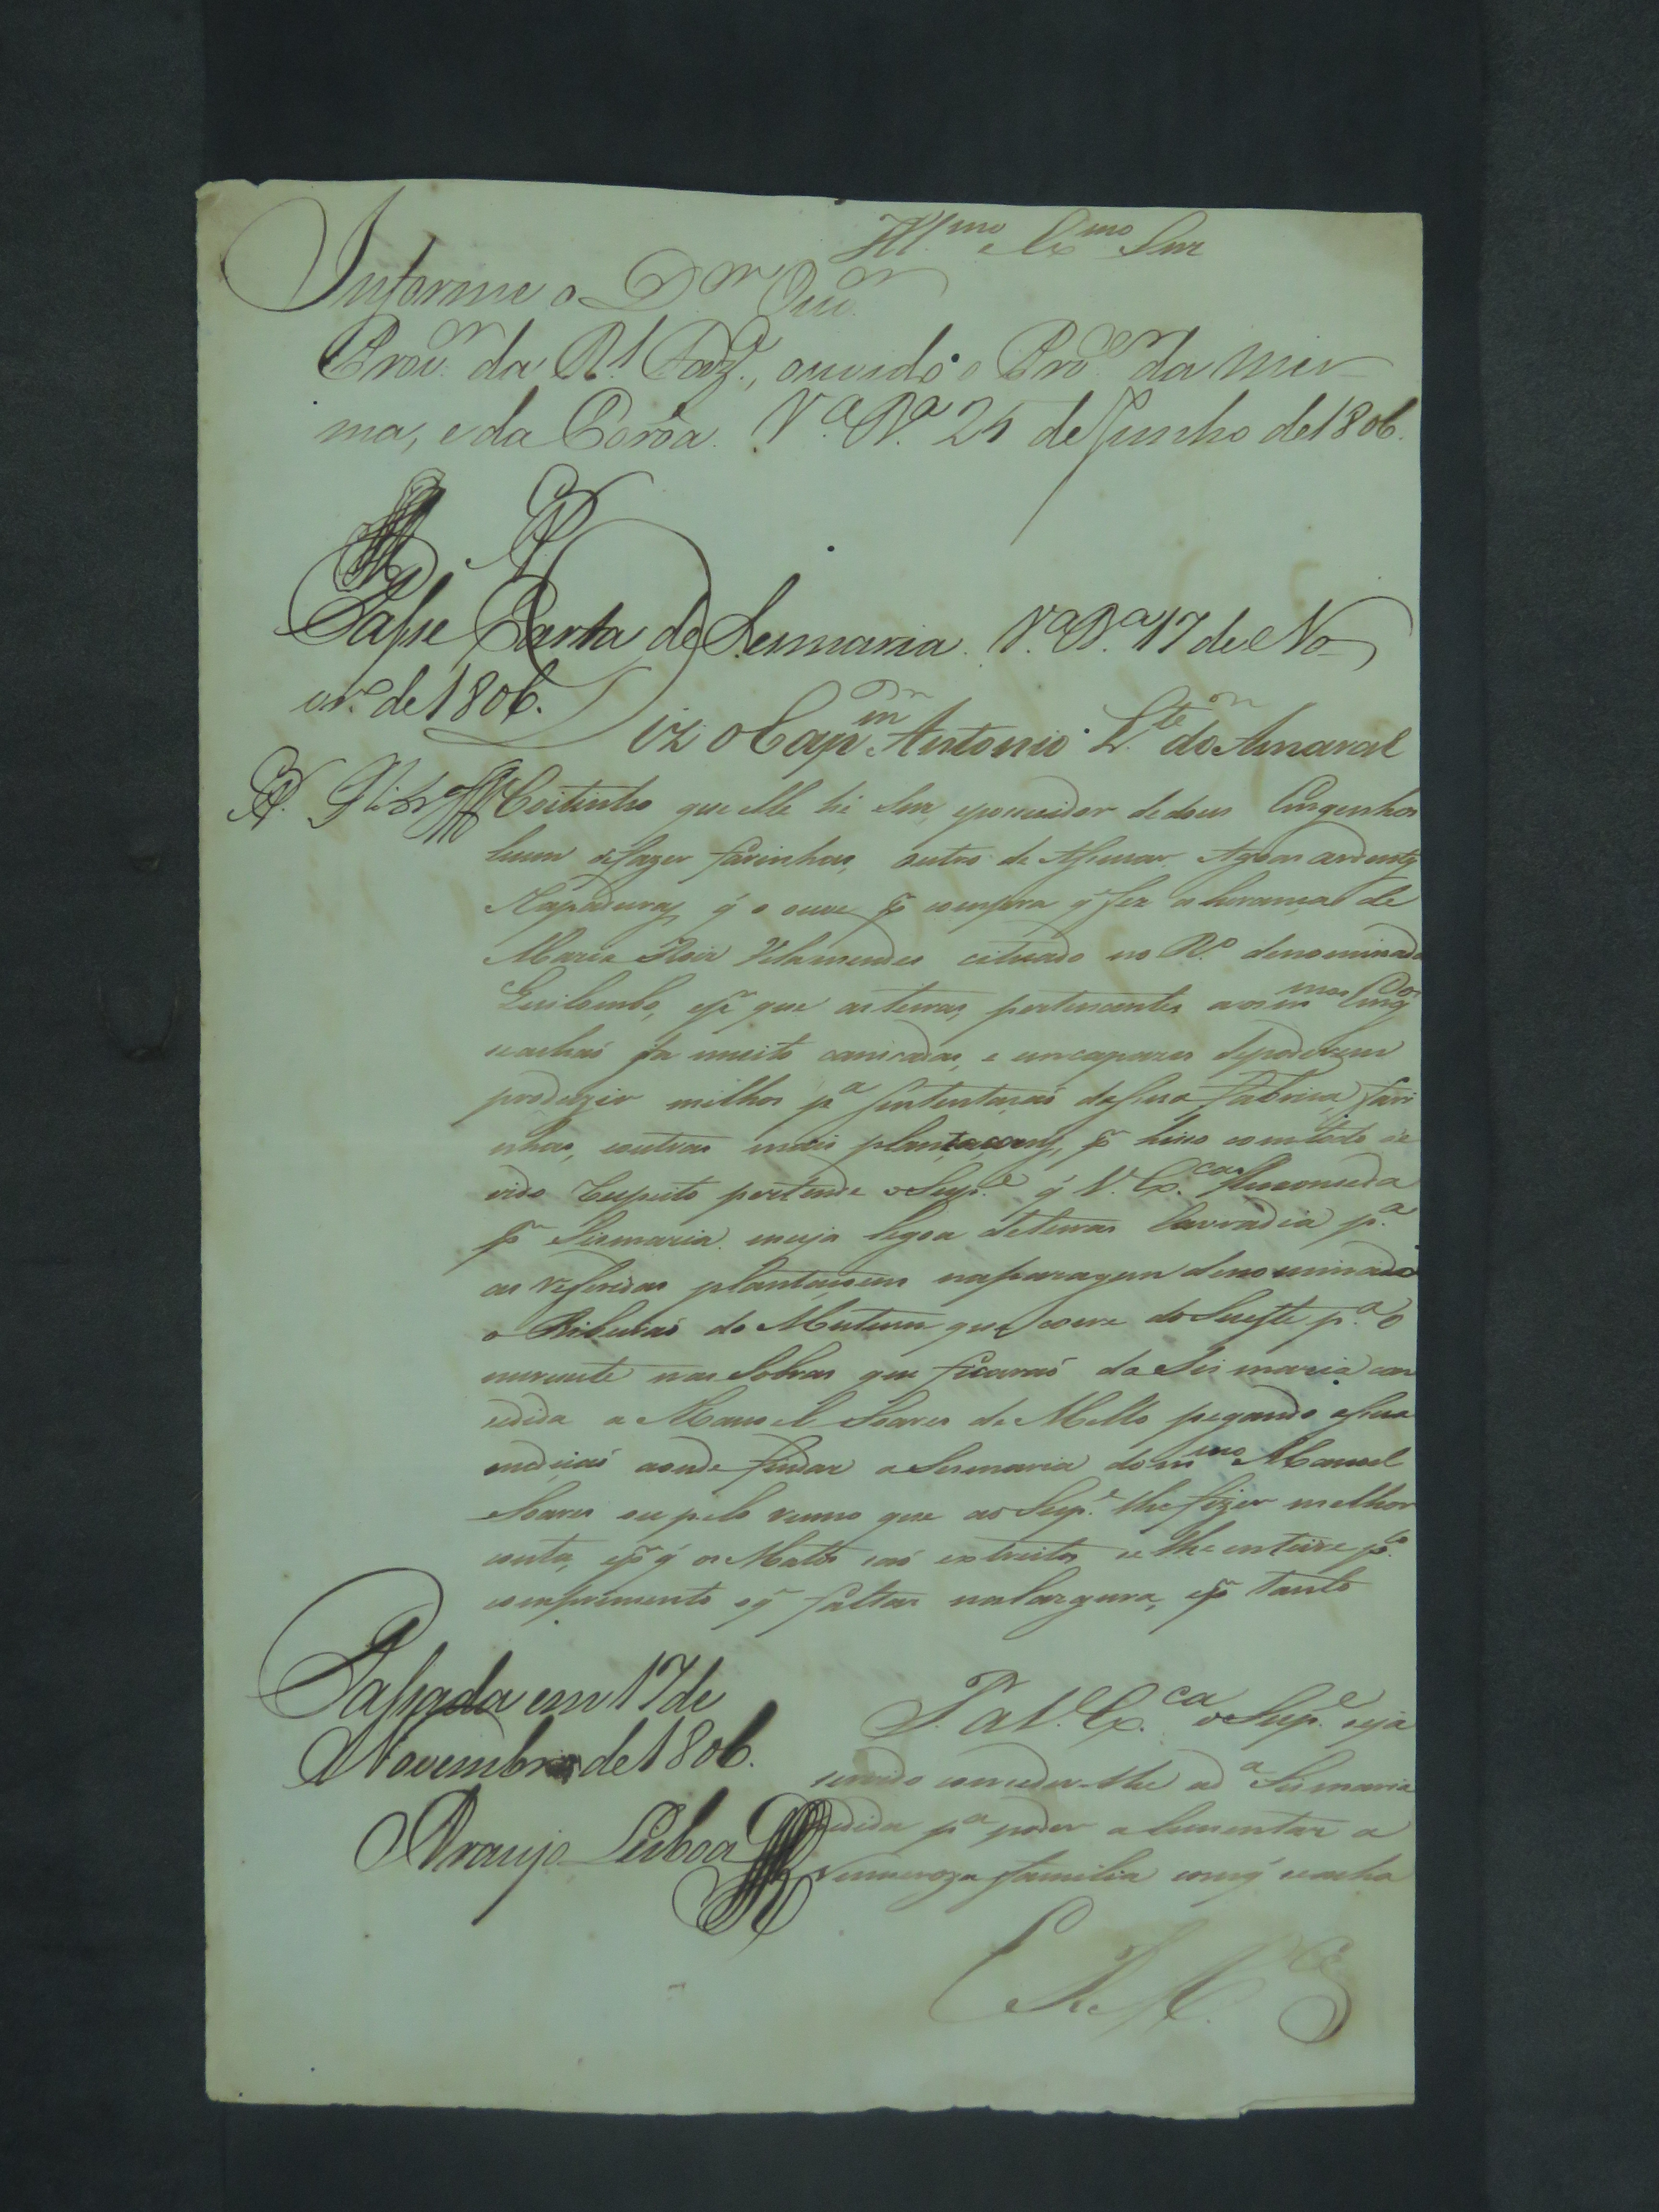 Ill.mo e Ex.mo Snr
Informe o D.or Ouv.or
Prov.or da R.l Faz.a, ouvido o Pro.or da mes-
ma, e da Coroa. V.a R.a 25 de Junho de 1806.
Passe Carta de Sesmaria. V.a R.a 17 de No-
vr.o de 1806.
Diz o Cap.m Antonio L.te do Amaral
Coitinho que elle hé Snr, e possuidor de dous Engenhos
hum de fazer farinhas, outro de Assucar Agoas ardentes
Rapaduras q̃ o ouve p̃ compra q̃ fez a herança de
Maria Velamendes cituado no R.o denominado
Quilombo, e p̃r que as terras pertencentes aos m.mos Eng.os
se achaõ ja muito cansadas, e incapazes de poderem
produzir milhos p.a sustentaçaõ da sua fabrica, fari
nhas, e outras mais plantaçoens, p̃ hiso com todo de
vido Respeito pertende o Sup.e q̃ V. Ex.ca lhe conceda
p̃r Sismaria meya legoa de terras lavradia p.a
as referidas plantasoens na paragem denominada
o Ribeiraõ do Mutum que corre do Sueste p.a o
nurueste nas Sobras que ficaraõ da Sismaria con
sedida a Manoel Soares de Mello pegando a sua
mediçaõ aonde findar a Sesmaria do m.mo Manoel
Soares ou pelo rumo que ao Sup.e lhe fizer melhor
conta, e p̃r q̃ os Matos saõ estreitos se lhe enteire p.lo
comprimento o q̃ faltar na largura, e p̃r tanto
P. a V. Ex.ca o Sup.e seja
servido conceder-lhe a d.a Sismaria
pedida p.a poder alimentar a
Numeroza familia com q̃ se acha
E. R. M.ce
Passada em 17 de
Novembro de 1806.
Araujo Lisboa